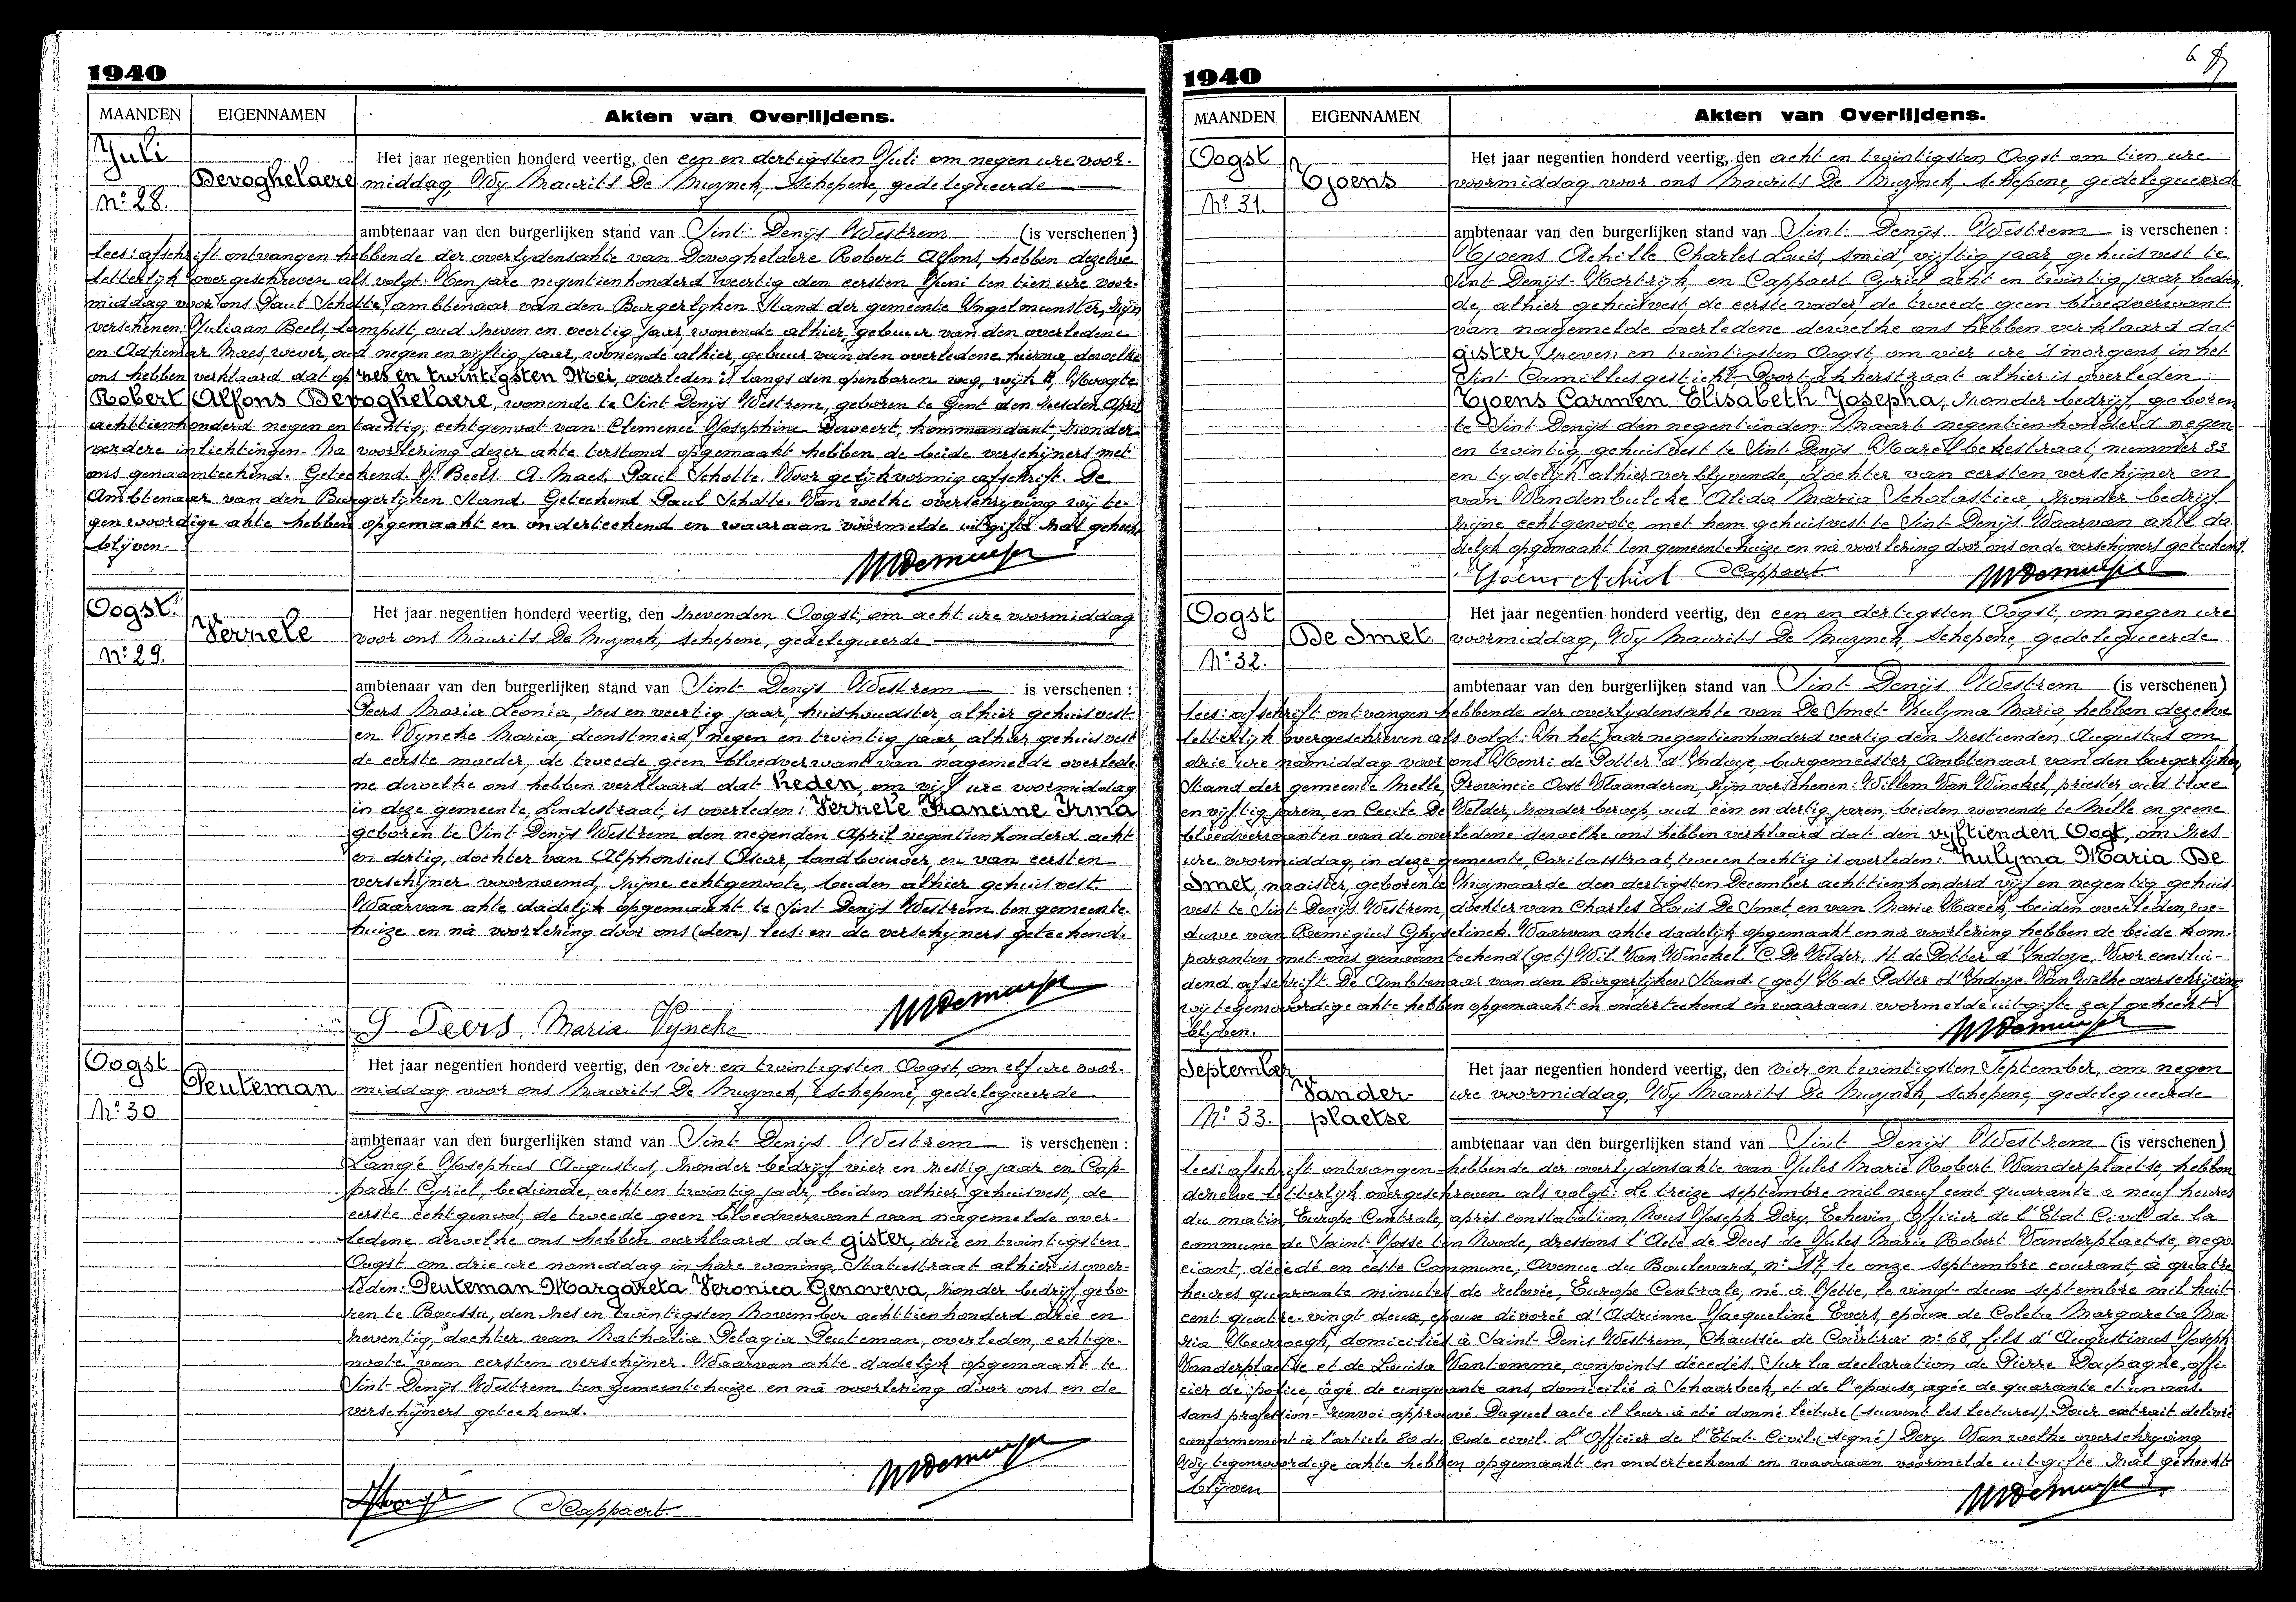 1940
MAANDEN EIGENNAMEN Akten van Overlijdens.
Juli
Nº 28.
Devoghelaere
Het jaar negentien honderd veertig, den een en dertigsten Juli om negen ure voor-
middag, Wij Maurits De Muynck, Schepene, gedelegueerde
ambtenaar van den burgerlijken stand van Sint Denijs Westrem (is verschenen)
lees: afschrift ontvangen hebbende der overlydensakte van Devoghelaere Robert Alfons, hebben dezelve
letterlijk overgeschreven als volgt: Ten jare negentienhonderd veertig den eersten Juni ten tien ure voor-
middag voor ons Paul Scholte, ambtenaar van den Burgerlyken Stand der gemeente Yngelmunster, zijn
verschenen: Juliaan Beels, Lampist, oud zeven en veertig jaar, wonende alhier, gebuur van den overledene
en Adhemar Maes, wever, oud negen en vijftig jaar, wonende alhier, gebuur van den overledene hierna, dewelke
ons hebben verklaard dat op zes en twintigsten Mei, overleden is langs den openbaren weg, wijk
Robert Alfons Devoghelaere, wonende te Sint Denijs Westrem, geboren te Gent den zesden April
achttienhonderd negen en tachtig, echtgenoot van Clemence Josephine Deweert, kommandant, zonder
verdere inlichtingen. Na voorlezing dezer akte terstond opgemaakt hebben de beide verschijners met
ons genaamteekend. Geteekend J. Beels. A. Maes. Paul Scholte. Voor gelijkvormig afschrift. De
Ambtenaar van den Burgerlijken Stand. Geteekend Paul Scholte. Van welke overschrijving wij te-
genwoordige akte hebben opgemaakt en onderteekend en waaraan voormelde uitgifte zal gehecht
blijven.
Oogst.
Nº 29.
Vernele
Het jaar negentien honderd veertig, den zevenden Oogst, om acht ure voormiddag
voor ons Maurits De Muynck, schepene, gedelegueerde
ambtenaar van den burgerlijken stand van Sint Denijs Westrem is verschenen :
Peers Maria Leonia, zes en veertig jaar, huishoudster, alhier gehuisvest
en Wyncke Maria, dienstmeid, negen en twintig jaar, alhier gehuisvest
de eerste moeder, de tweede geen bloedverwant van nagemelde overlede-
ne dewelke ons hebben verklaard dat heden, om vijf ure voormiddag
in deze gemeente, Lindestraat, is overleden: Vernele Francine Irma
geboren te Sint Denijs Westrem den negenden April negentienhonderd acht
en dertig, dochter van Alphonsius Oscar, landbouwer en van eersten
verschijner voornoemd, zijne echtgenoote, beiden alhier gehuisvest.
Waarvan akte dadelijk opgemaakt te Sint Denijs Westrem ten gemeente-
huize en na voorlezing door ons (den) lees: en de verschijners geteekend.
Peers Maria Vyncke
Oogst
Nº 30
Peuteman
Het jaar negentien honderd veertig, den vier en twintigsten Oogst, om elf ure voor-
middag voor ons Maurits De Muynck, Schepene, gedelegueerde
ambtenaar van den burgerlijken stand van Sint Denijs Westrem is verschenen :
Lange Josephus Augustus, zonder bedrijf vier en zestig jaar en Cap-
paert Cyriel, bediende, acht en twintig jaar, beiden alhier gehuisvest, de
eerste echtgenoot, de tweede geen bloedverwant van nagemelde over-
ledene dewelke ons hebben verklaard dat gister, drie en twintigsten
Oogst om drie ure namiddag in hare woning, Statiestraat alhier is over-
leden: Peuteman Margareta Veronica Genoveva, zonder bedrijf, gebo-
ren te Boussu, den zes en twintigsten November achttienhonderd drie en
zeventig, dochter van Nathalia Pelagia Peuteman, overleden, echtge-
noote van eersten verschijner. Waarvan akte dadelijk opgemaakt te
Sint Denijs Westrem ten gemeentehuize en na voorlezing door ons en de
verschijners geteekend.
Cappaert.
1940
MAANDEN EIGENNAMEN Akten van Overlijdens.
Oogst
Nº 31.
Tjoens
Het jaar negentien honderd veertig, den acht en twintigsten Oogst om tien ure
voormiddag voor ons Maurits De Muynck, schepene, gedelegueerde
ambtenaar van den burgerlijken stand van Sint Denijs Westrem is verschenen :
Tjoens Achille Charles Louis, smid, vijftig jaar, gehuisvest te
Sint Denijs-Kortrijk, en Cappaert Cyriel acht en twintig jaar, bedien-
de, alhier gehuisvest, de eerste vader, de tweede geen bloedverwant
van nagemelde overledene dewelke ons hebben verklaard dat
gister zeven en twintigsten Oogst, om vier ure 's morgens, in het
Sint Camillusgesticht, Oostakkerstraat alhier is overleden :
Tjoens Carmen Elisabeth Josepha, zonder bedrijf, geboren
te Sint Denijs den negentienden Maart negentienhonderd negen
en twintig, gehuisvest te Sint Denijs Karelbekestraat, nummer 33
en tydelyk alhier verblyvende, dochter van eersten verschijner en
van Vandenbulcke Alida Maria Scholastica, zonder bedrijf
zijne echtgenoote, met hem gehuisvest te Sint Denijs. Waarvan akte da-
delyk opgemaakt ten gemeentehuize en na voorlezing door ons en de verschijners geteekend.
Tjoens Achiel Cappaert.
Oogst
Nº 32.
De Smet.
Het jaar negentien honderd veertig, den een en dertigsten Oogst, om negen ure
voormiddag, Wy Maurits De Muynck, Schepene, gedelegueerde
ambtenaar van den burgerlijken stand van Sint Denijs Westrem (is verschenen)
lees: afschrift ontvangen hebbende der overlydensakte van De Smet Zulyma Maria, hebben dezelve
letterlijk overgeschreven als volgt: In het jaar negentienhonderd veertig den zestienden Augustus om
drie ure namiddag voor ons Henri de Potter d'Indoye, burgemeester, Ambtenaar van den burgerlijken
Stand der gemeente Melle, Provincie Oost Vlaanderen zijn verschenen: Willem Van Winckel, priester oud twee
en vijftig jaren, en Cecile De Velder, zonder beroep, oud een en dertig jaren, beiden wonende te Melle en geene
bloedverwanten van de overledene dewelke ons hebben verklaard dat den vyftienden Oogt, om zes
ure voormiddag, in deze gemeente, Caritasstraat, twee en tachtig is overleden: Zulyma Maria De
Smet, naaister, geboren te Zwynaarde den dertigsten December achttienhonderd vijf en negentig, gehuis-
vest te Sint Denijs Westrem, dochter van Charles Louis De Smet, en van Maria Haeck, beiden overleden, we-
duwe van Remigius Ghyselinck. Waarvan akte dadelijk opgemaakt en na voorlezing hebben de beide kom-
paranten met ons genaamteekend (get) Wil. Van Winckel. C. De Velder. H. de Potter d'Indoye. Voor eenslui-
dend afschrift. De Ambtenaar van den Burgerlijken Stand. (get) H. de Potter d'Indoye. Van welke overschrijving
wij tegenwoordige akte hebben opgemaakt en onderteekend en waaraan voormelde uitgifte zal gehecht
blyven.
September
Nº 33.
Vander-
plaetse
Het jaar negentien honderd veertig, den vier en twintigsten September, om negen
ure voormiddag, Wy Maurits De Muynck, schepene, gedelegueerde
ambtenaar van den burgerlijken stand van Sint Denijs Westrem (is verschenen)
lees: afschrift ontvangen hebbende der overlydensakte van Jules Marie Robert Vanderplaetse, hebben
dezelve letterlyk overgeschreven als volgt: Le treize septembre mil neuf cent quarante a neuf heures
du matin, Europe Centrale, après constatation, Nous Joseph Dery, Echevin, Officier de l'Etat Civil de la
commune de Saint Josse ten Noode, dressons l'Acte de Deces de Jules Marie Robert Vanderplaetse, nego
ciant, décédé en cette Commune, Avenue du Boulevard, nº 17, le onze septembre courant, à quatre
heures quarante minutes de relevée, Europe Centrale, né à Jette, le vingt-deux septembre mil huit
cent quatre-vingt deux, epoux divorcé d'Adrienne Jacqueline Evers, epoux de Coleta Margareta Ma-
ria domicilié à Saint Denis Westrem, Chaussée de Courtrai nº 68, fils d'Augustinus Joseph
Vanderplaetse et de Louisa Vantomme, conjoints décédés. Sur la declaration de Pierre Dapagne, offi-
cier de police, âgé de cinquante ans, domicilié à Schaarbeek, et de l'epouse, agée de quarante et un ans.
sans profession- renvoi approuvé. Duquel acte il leur à été donné lecture (suivent les lectures). Pour extrait delivré
conformement à l'article 80 du Code civil. L'Officier de l'Etat-Civil, (signé) Dery. Van welke overschryving
Wy tegenwoordige akte hebben opgemaakt en onderteekend en waaraan voormelde uitgifte zal gehecht
blijven